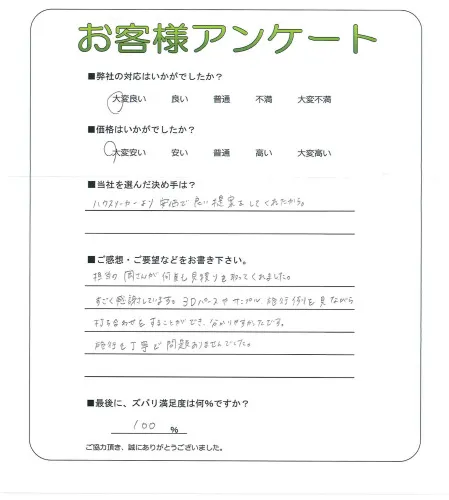 お客様アンケート
■弊社の対応はいかがでしたか？
大変良い 良い 普通 不満 大変不満
■価格はいかがでしたか？
大変安い 安い 普通 高い 大変高い
■当社を選んだ決め手は？
ハウスメーカーより安価で良い提案をしてくれたから。
■ご感想・ご要望などをお書き下さい。
担当の岡さんが何度も見積りを取ってくれました。
すごく感謝しています。3Dパースやサンプル 施行例りを見ながら
打ち合わせをすることができ、分かりやすかったです。
施行も丁寧で問題ありませんでした。
■最後に、ズバリ満足度は何％ですか？
100 ％
ご協力頂き、誠にありがとうございました。